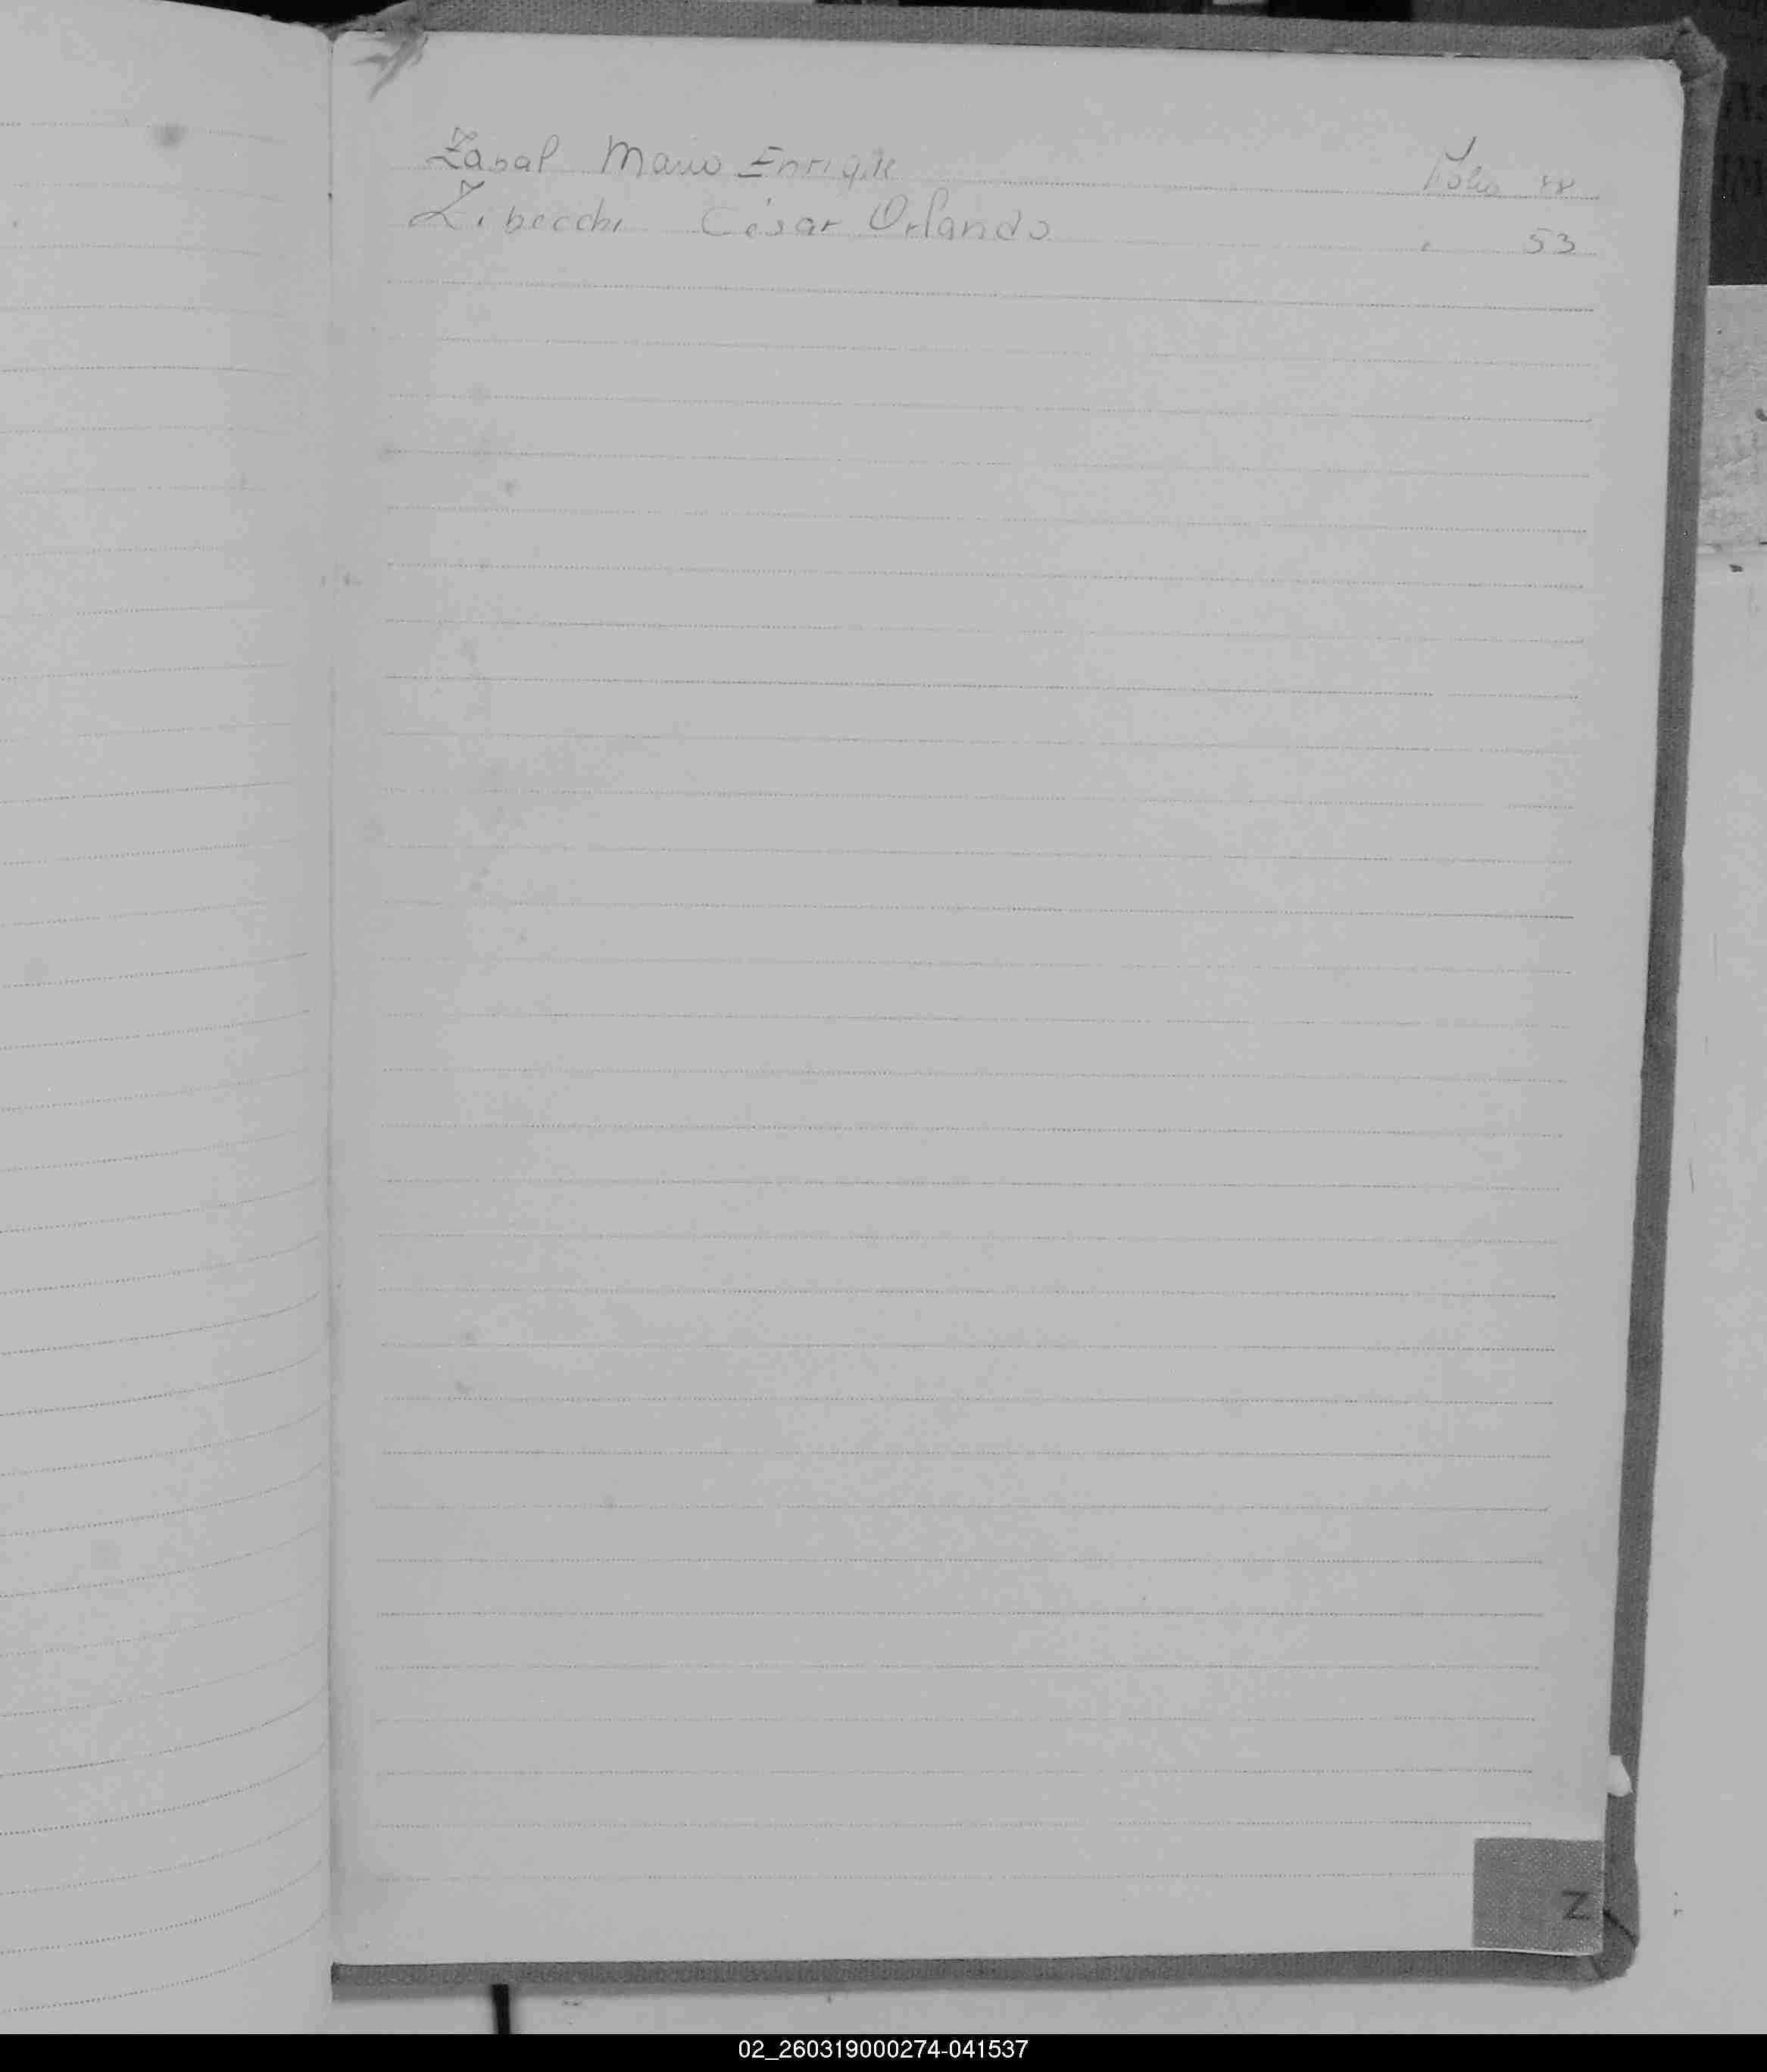 Zabal Mario Enrique Folio 48
Zibecchi César Orlando " 53
Z
02_260319000274-041537